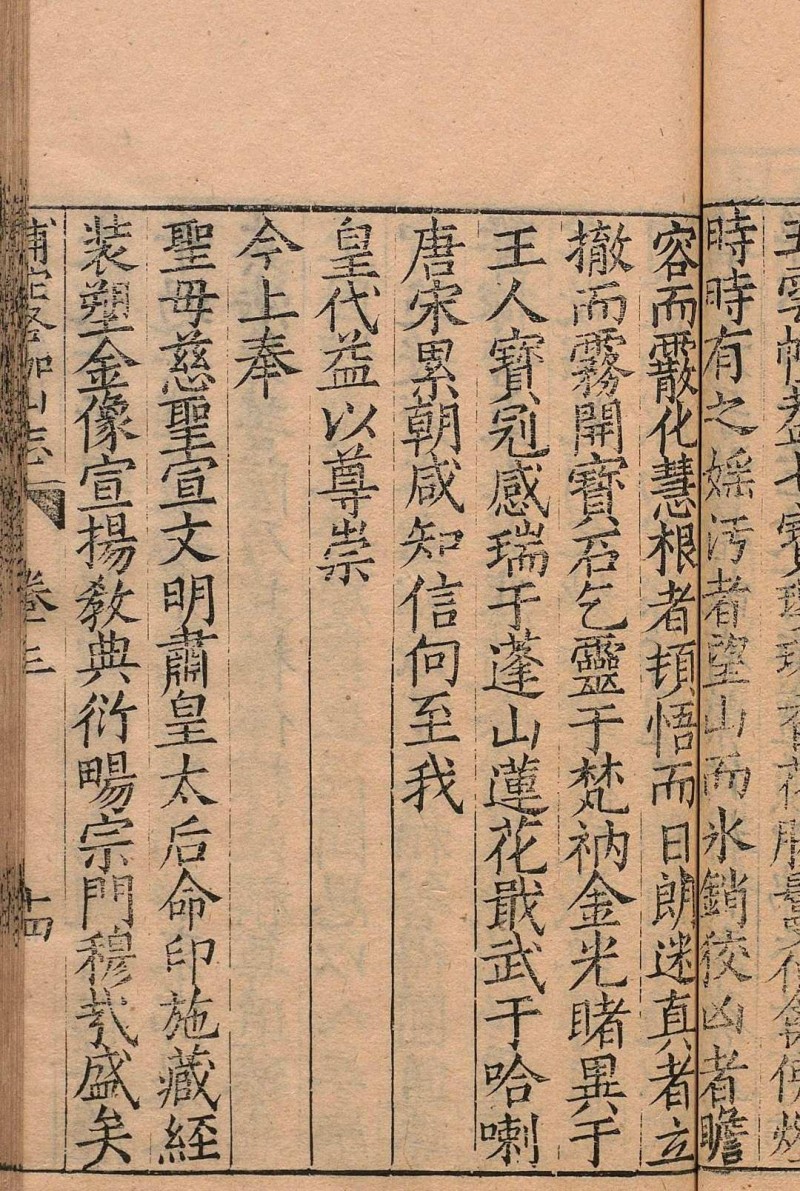 時時有之婬汚者望山而氷銷狡凶者瞻
容而霰化慧根者頓悟而日朗迷真者立
撤而霧開寶石乞靈于梵衲金光睹異于
王人寶冠感瑞于蓬山蓮花戢武于哈喇
唐宋累朝咸知信向至我
皇代益以尊崇
今上奉
聖母慈聖宣文明肅皇太后命印施藏經
裝塑金像宣揚敎典衍暢宗門穆哉盛矣
補陀洛伽山志 卷三 十四